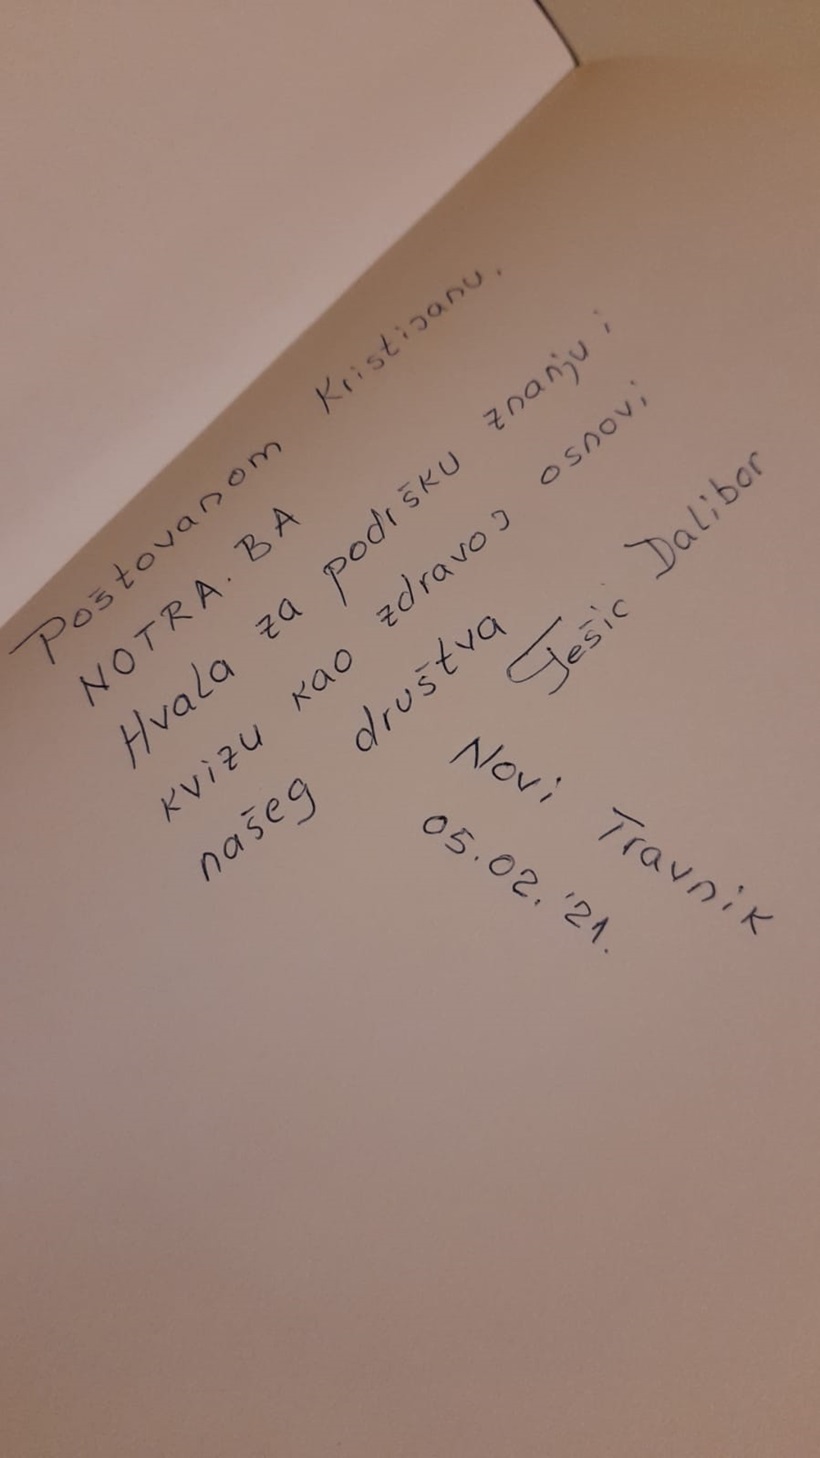 Poštovanom Kristijanu,
NOTRA.BA
Hvala za podršku znanju i
kvizu kao zdravoj osnovi
našeg društva
Ješic Dalibor
Novi Travnik
05.02.'21.